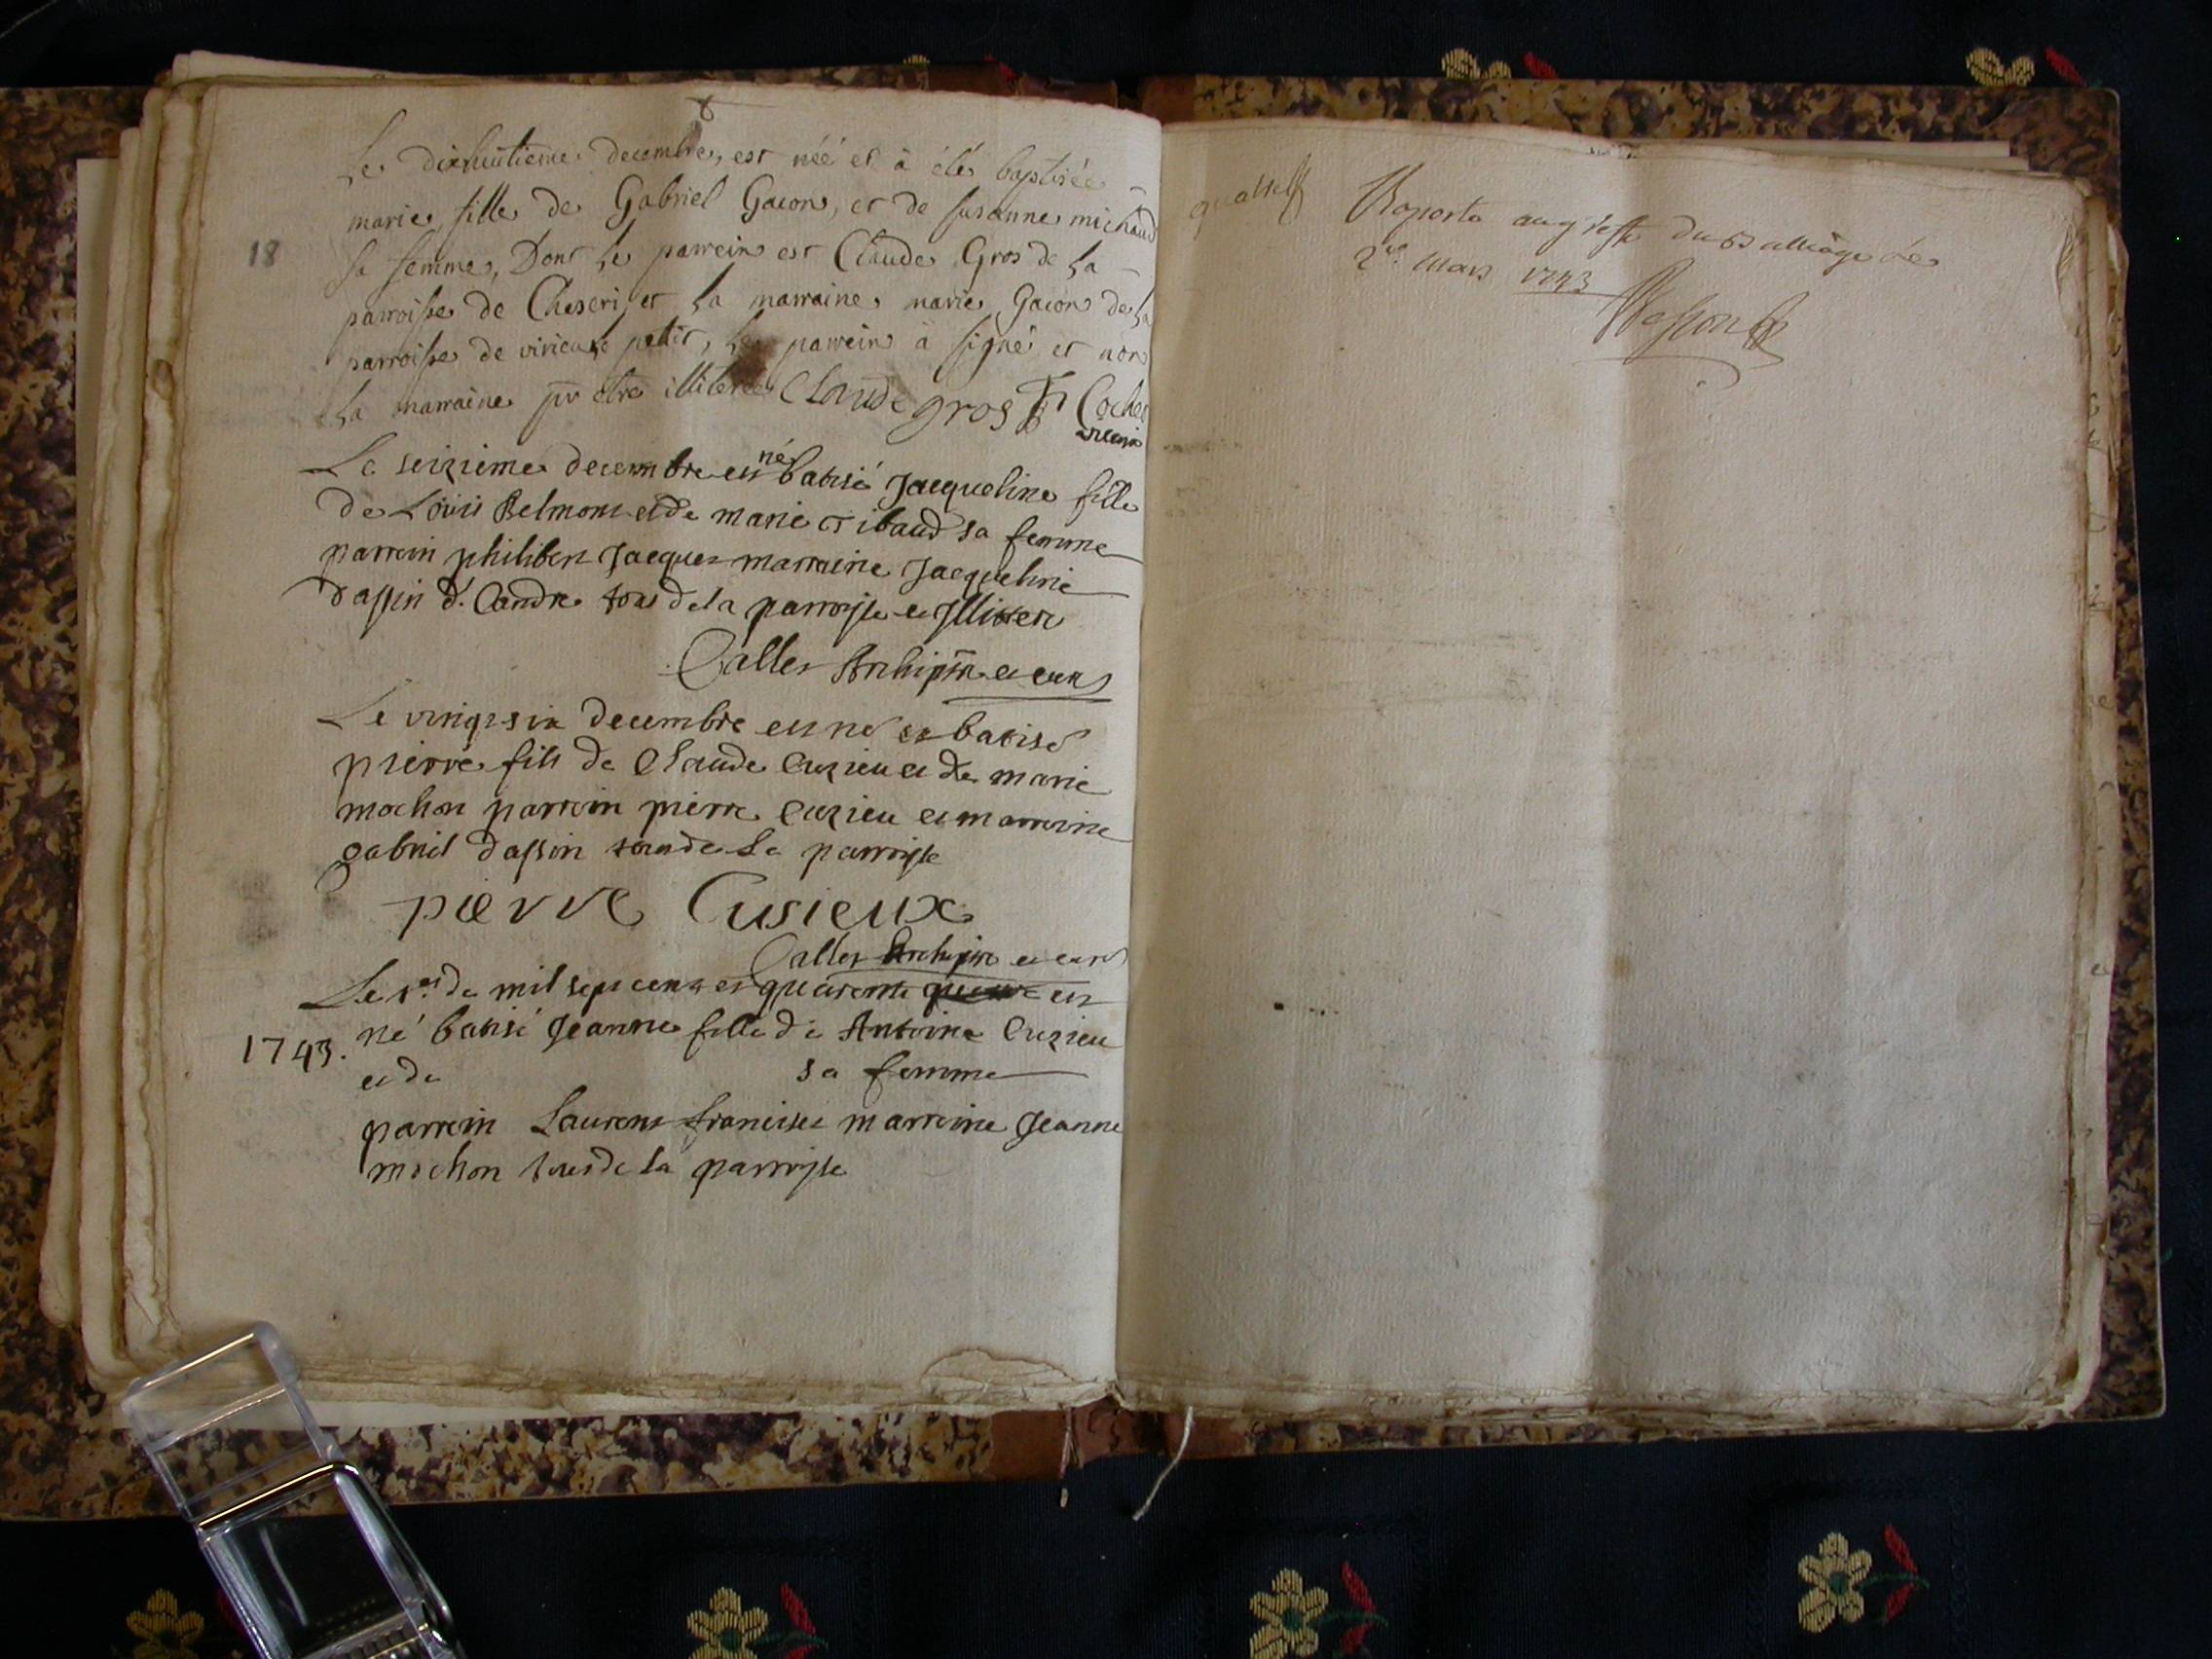 8
Le dixhuitieme decembre, est néé et à éte baptisée
marie, fille de Gabriel Gacon, et de susanne michaud
18
sa femme, Dont le parrein est Claude Gros de la
parroisse de Cheseri, et la marraine marie Gacon de la
parroisse de virieu le petit, le parrein à signé et non
la marraine pr etre illiterée Claude gros Cochet
vicaire
Le seizieme decembre est né batisé Jacqueline fille
de Loüis Belmont et de marie Tibaud sa femme
parrein philibert Jacques marraine Jacqueline
dassin d. Candre tous de la parroisse et Illitere
Callet Archiptre et curé
Le vingt six decembre est né et batisé
pierre fils de Claude Cuzieu et de marie
mochon parrein pierre Cuzieu et marreine
gabriel dassin tous de la parroisse
pierre Cusieux
Callet Archiptre et curé
Le 1er de mil sept cent et quarente est
né batisé Jeanne fille de Antoine Cuzieu
1743.
et de sa femme
parrein Laurent franciset marreine Jeanne
mochon tous de la parroisse
Raporté au greffe du Balliage le
2e. Mars 1743